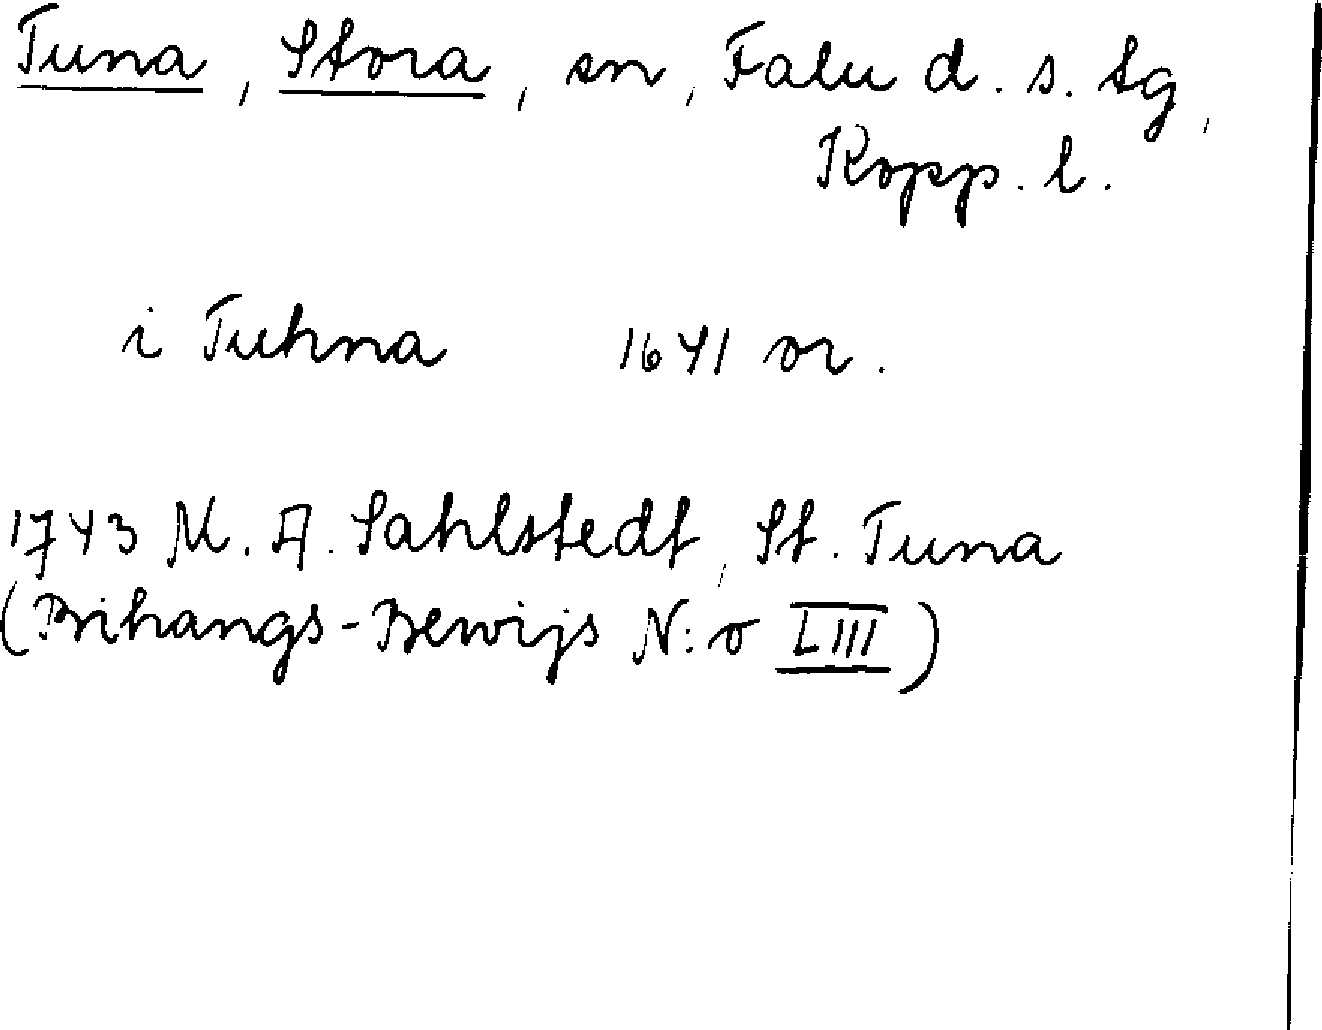 Tuna, Stora, sn, Falu d. s. tg,
Kopp. l.
i Tuhna 1641 or.
1743 M. A. Sahlstedt, St. Tuna
(Bihangs-Bewijs N:o LIII)